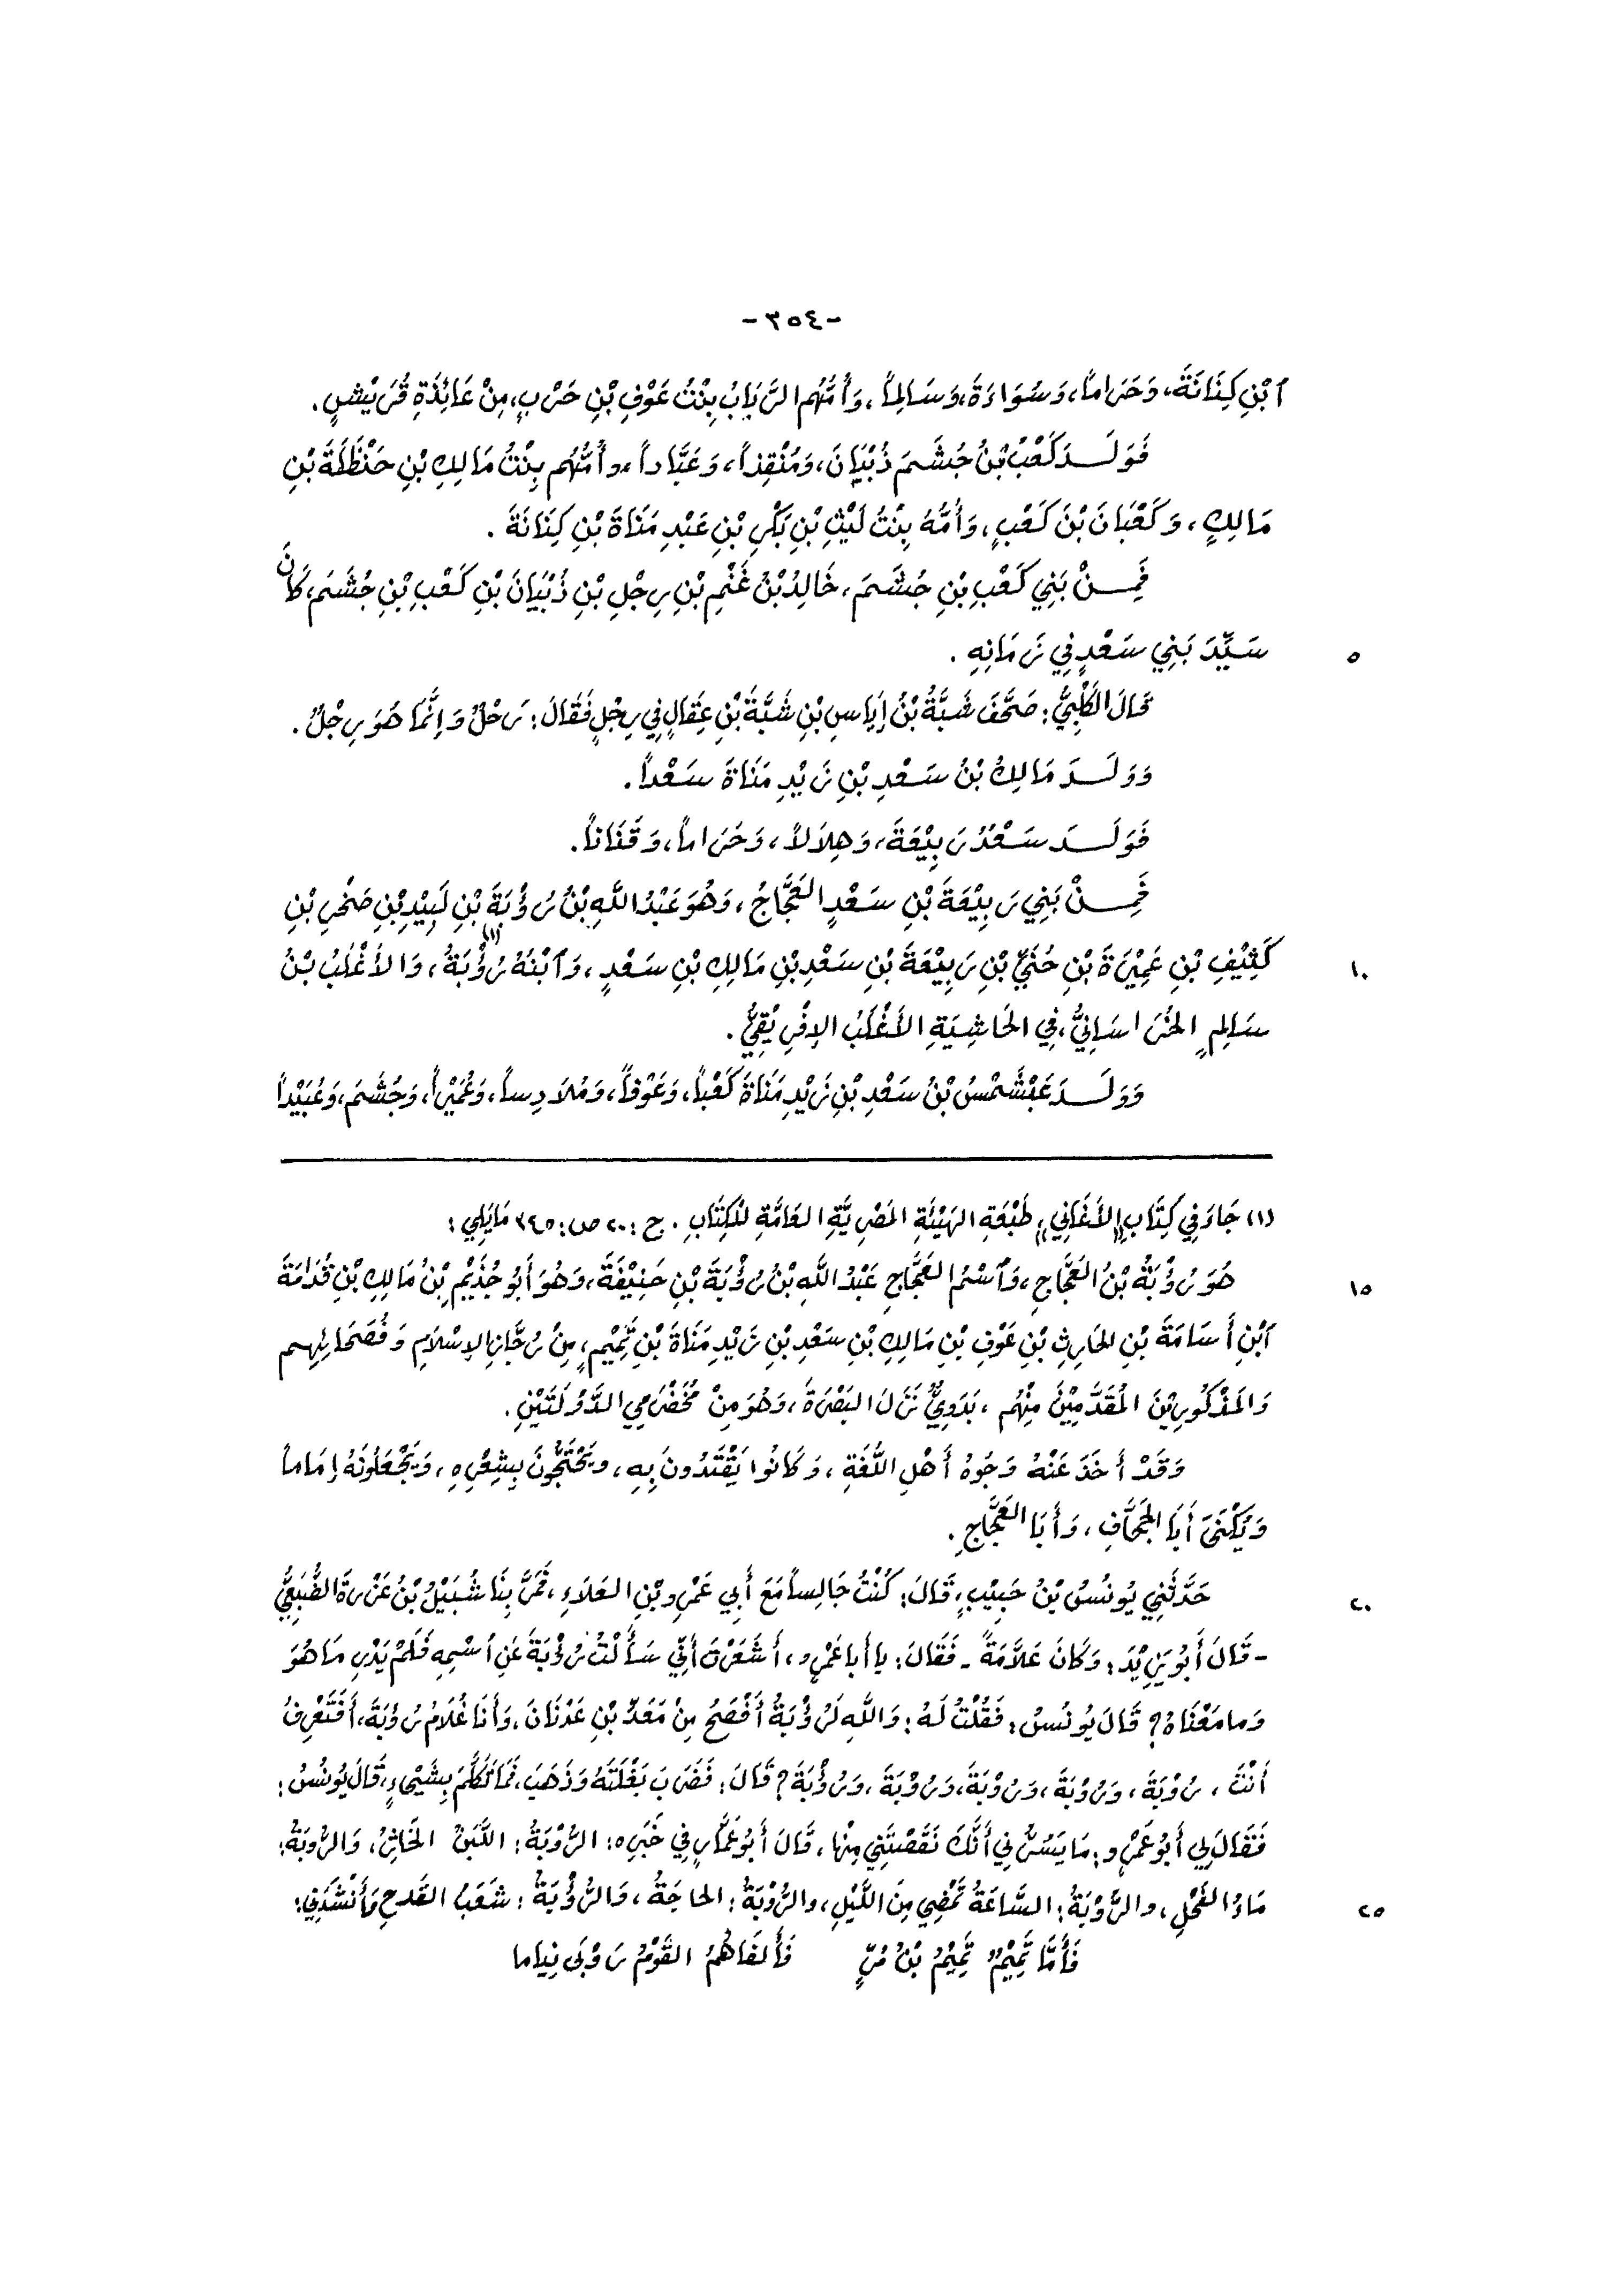 -٣٥٤-
ٱبْنِ كِنَانَةَ، وَحَرَاماً، وَسُوَاءَةَ، وَسَالِماً، وَأُمُّهُم الرَّبَابُ بِنْتُ عَوْفِ بْنِ حَرْبٍ، مِنْ عَائِذَةِ قُرَيْشٍ.
فَوَلَـدَ كَعْبُ بْنُ جُشَمَ ذُبْيَانَ، وَمُنْقِذاً، وَعَبَّاداً، وأُمُّهُم بِنْتُ مَالِكِ بْنِ حَنْظَلَةَ بْنِ
مَالِكٍ، وَكَعْبَانَ بْنَ كَعْبٍ، وَأُمُّهُ بِنْتُ لَيْثِ بْنِ بَكْرِ بْنِ عَبْدِ مَنَاةَ بْنِ كِنَانَةَ.
فَمِـنْ بَنِي كَعْبِ بْنِ جُشَمَ، خَالِدُ بْنُ غَنْمِ بْنِ رِجْلِ بْنِ ذُبْيَانَ بْنِ كَعْبِ بْنِ جُشَمَ، كَانَ
٥ سَيِّدَ بَنِي سَعْدٍ فِي زَمَانِهِ.
قَالَ الكَلْبِيُّ: صَحَّفَ شَبَّةُ بْنُ إِيَاسِ بْنِ شَبَّةَ بْنِ عِقَالٍ فِي رِجْلٍ فَقَالَ: رَحْلٌ وَإِنَّمَا هُوَ رِجْلٌ.
وَوَلَـدَ مَالِكُ بْنُ سَعْدِ بْنِ زَيْدِ مَنَاةَ سَعْداً.
فَوَلَـدَ سَعْدٌ رَبِيْعَةَ، وَهِلَالاً، وَحَرَاماً، وَقَنَاناً.
فَمِـنْ بَنِي رَبِيْعَةَ بْنِ سَعْدٍ العَجَّاجُ، وَهُوَ عَبْدُ اللَّهِ بْنُ رُؤْبَةَ بْنِ لَبِيْدِ بْنِ صَخْرِ بْنِ
١٠ كَثِيْفِ بْنِ عَمِيْرَةَ بْنِ حُنَيِّ بْنِ رَبِيْعَةَ بْنِ سَعْدِ بْنِ مَالِكِ بْنِ سَعْدٍ، وَٱبْنُهُ رُؤْبَةُ (١)، وَالأَغْلَبُ بْنُ
سَالِمٍ الخُرَاسَانِيُّ، فِي الحَاشِيَةِ الأَغْلَبُ الإِفْرِيْقِيُّ.
وَوَلَـدَ عَبْشَمْسُ بْنُ سَعْدِ بْنِ زَيْدِ مَنَاةَ كَعْباً، وَعَوْفاً، وَمُلَادِساً، وَعُمَيْراً، وَجُشَمَ، وَعُبَيْداً
(١) جَاءَ فِي كِتَابِ «الأَغَانِي» طَبْعَةِ الهَيْئَةِ المَصْرِيَّةِ العَامَّةِ لِلكِتَابِ. ج: ٢٠ ص: ٣٤٥ مَايَلِي:
١٥ هُوَ رُؤْبَةُ بْنُ العَجَّاجِ، وَٱسْمُ العَجَّاجِ عَبْدُ اللَّهِ بْنُ رُؤْبَةَ بْنِ حَنِيْفَةَ، وَهُوَ أَبُو جُذَيْمِ بْنُ مَالِكِ بْنِ قُدَامَةَ
ٱبْنِ أُسَامَةَ بْنِ الحَارِثِ بْنِ عَوْفِ بْنِ مَالِكِ بْنِ سَعْدِ بْنِ زَيْدِ مَنَاةَ بْنِ تَمِيْمٍ، مِنْ رُجَّازِ الإِسْلَامِ وَفُصَحَائِهِم
وَالمَذْكُورِيْنَ المُقَدَّمِيْنَ مِنْهُم، بَدَوِيٌّ نَزَلَ البَصْرَةَ، وَهُوَ مِنْ مُخَضْرَمِي الدَّوْلَتَيْنِ.
وَقَدْ أَخَذَ عَنْهُ وَجُوهُ أَهْلِ اللُّغَةِ، وَكَانُوا يَقْتَدُونَ بِهِ، ويَحْتَجُّونَ بِشِعْرِهِ، وَيَجْعَلُونَهُ إِمَاماً
وَيُكْنَى أَبَا الجَحَّافِ، وَأَبَا العَجَّاجِ.
٢٠ حَدَّثَنِي يُونُسُ بْنُ حَبِيْبٍ، قَالَ: كُنْتُ جَالِساً مَعَ أَبِي عَمْرِو بْنِ العَلَاءِ، فَمَرَّ بِنَا شُبَيْلُ بْنُ عَزْرَةَ الضُّبَعِيُّ
- قَالَ أَبُو يَزِيْدَ: وَكَانَ عَلَّامَةً - فَقَالَ: يا أَبا عَمْرٍو، أَشَعَرْتَ أَنِّي سَأَلْتُ رُؤْبَةَ عَنِ ٱسْمِهِ فَلَمْ يَدْرِ مَا هُوَ
وَمَا مَعْنَاهُ؟ قَالَ يُونُسُ: فَقُلْتُ لَهُ: وَاللَّهِ لَرُؤْبَةُ أَفْصَحُ مِنْ مَعَدِّ بْنِ عَدْنَانَ، وَأَنَا غُلَامُ رُؤْبَةَ، أَفَتَعْرِفُ
أَنْتَ، رُوْبَةَ، وَرُوْبَةَ، وَرُوْبَةَ، وَرُوْبَةَ، وَرُؤْبَةَ؟ قَالَ: فَضَرَبَ بَغْلَتَهُ وَذَهَبَ، فَمَا تَكَلَّمَ بِشَيْءٍ، قَالَ يُونُسُ:
فَقَالَ لِي أَبُو عَمْرٍو: مَا يَسُرُّنِي أَنَّكَ نَقَصْتَنِي مِنْهَا، قَالَ أَبُو عَمَّارٍ فِي خَبَرِهِ: الرُّوْبَةُ: اللَّبَنُ الخَاثِرُ، وَالرُّوبَةُ:
٢٥ مَاءُ الفَحْلِ، والرَّوْبَةُ: السَّاعَةُ تَمْضِي مِنَ اللَّيْلِ، والرُّوْبَةُ: الحاجَةُ، وَالرُّؤْبَةُ: شَعَبُ القَدحِ وَأَنْشَدَنِي:
فَأَمَّا تَمِيْمٌ تَمِيْمُ بْنُ مُرٍّ فَأَلفَاهُمُ القَوْمُ رَوْبَى نِيَاما